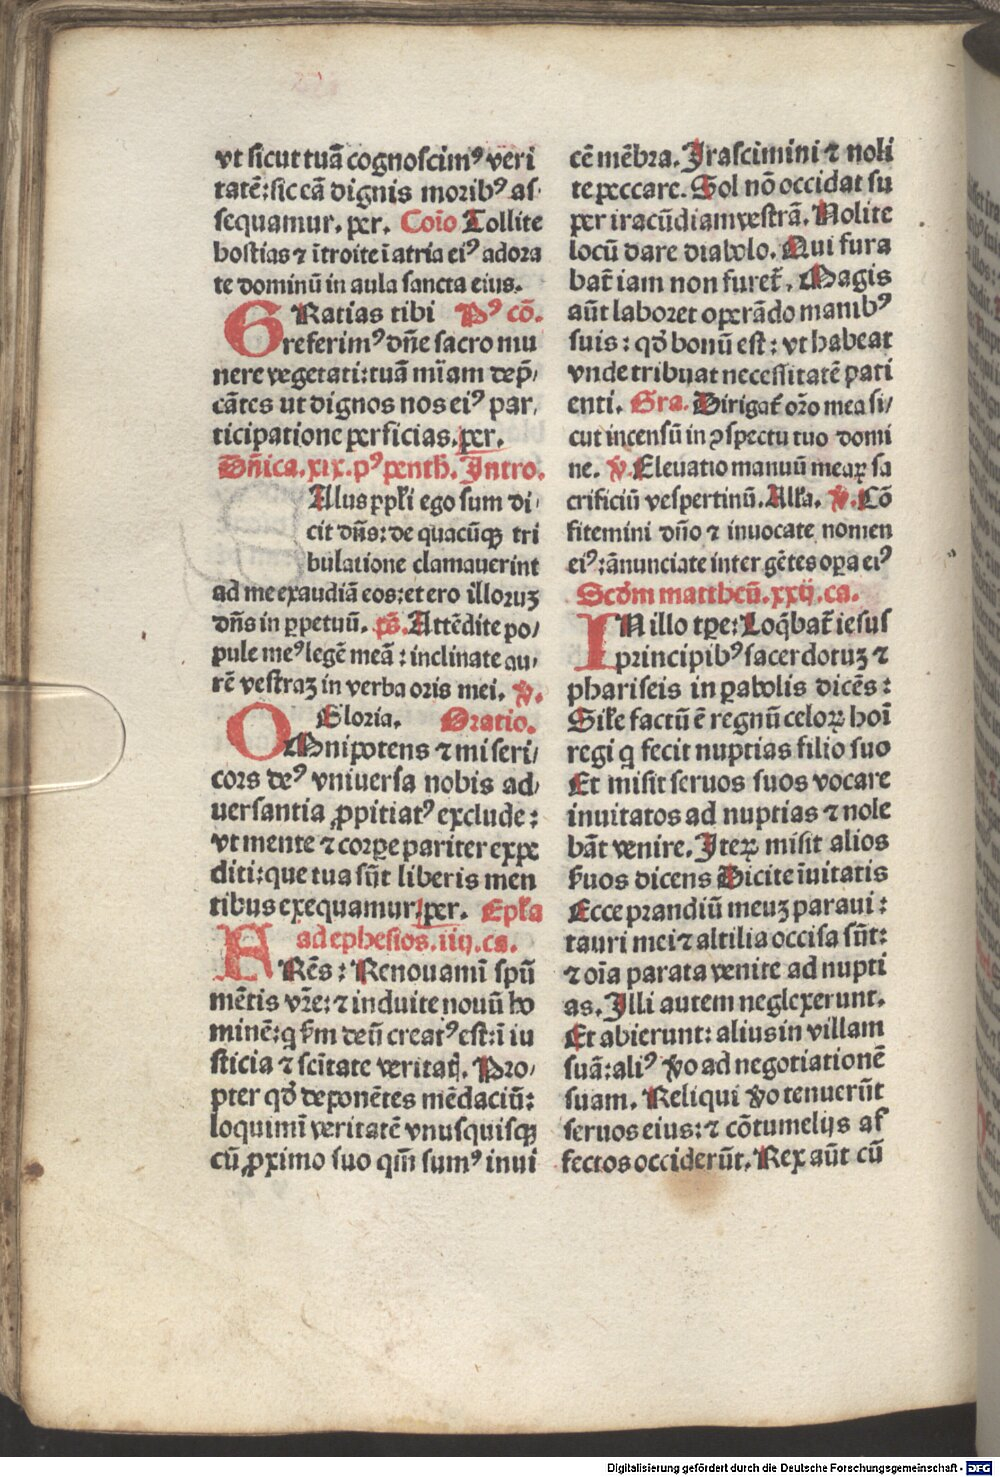 vt sicut tuã cognoscimꝰ veri
tatẽ: sic eã dignis moribꝰ as⸗
sequamur. per. Coĩo Tollite
hostias ⁊ ĩtroite ĩ atria eiꝰ adora
te dominũ in aula sancta eius.
GRatias tibi Pꝰ cõ.
referimꝰ dñe sacro mu
nere vegetati: tuã mĩam dep̃⸗
cãtes ut dignos nos eiꝰ par⸗
ticipatione perficias. per.
Dñica. xix. pꝰ penth. Intro.
Alus ppľi ego sum di⸗
cit dñs: de quacũqꝫ tri
bulatione clamauerint
ad me exaudiã eos: et ero illoruꝫ
dñs in ꝑpetuũ. ps̃. Attẽdite po⸗
pule meꝰ legẽ meã: inclinate au⸗
rẽ vestraꝫ in verba oris mei. ℣.
Gloria. Oratio.
OMnipotens ⁊ miseri⸗
cors deꝰ vniuersa nobis ad⸗
uersantia ꝓpitiatꝰ exclude:
vt mente ⁊ corꝑe pariter expe
diti: que tua sũt liberis men
tibus exequamur. per. Epľa
ad ephesios. iiij. ca.
FRẽs: Renouamĩ spũ
mẽtis vr̃e: ⁊ induite nouũ ho
minẽ: q̃ ẜm deũ creatꝰ est: ĩ iu
sticia ⁊ scĩtate veritatꝭ. Pro⸗
pter qď deponẽtes mẽdaciũ:
loquimĩ veritatẽ vnusquisqꝫ
cũ ꝓximo suo qm̃ sumꝰ inui
cẽ mẽbra. Irascimini ⁊ noli
te peccare. Sol nõ occidat su
per iracũdiam vestrã. Nolite
locũ dare diabolo. Qui fura
bat̃ iam non furet̃. Magis
aũt laboret operãdo manibꝰ
suis: qď bonũ est: vt habeat
vnde tribuat necessitatẽ pati
enti. Gra. Dirigat̃ or̃o mea si⸗
cut incensũ in ꝯspectu tuo domi
ne. ℣. Eleuatio manuũ mearꝝ sa
crificiũ vespertinũ. Alľa. ℣. Cõ
fitemini dño ⁊ inuocate nomen
eiꝰ: ãnunciate inter gẽtes oꝑa eiꝰ
Scďm mattheũ. xxij. ca.
IN illo tꝑe: Loq̃bat̃ iesus
principibꝰ sacerdotuꝫ ⁊
phariseis in ꝑabolis dicẽs:
Siľe factũ ẽ regnũ celorꝝ hoĩ
regi q̃ fecit nuptias filio suo
Et misit seruos suos vocare
inuitatos ad nuptias ⁊ nole
bãt venire. Iterꝝ misit alios
ẜuos dicens Dicite ĩuitatis
Ecce prandiũ meuꝫ paraui:
tauri mei ⁊ altilia occisa sũt:
⁊ oĩa parata venite ad nupti
as. Illi autem neglexerunt.
Et abierunt: alius in villam
suã: aliꝰ ṽo ad negotiationẽ
suam. Reliqui ṽo tenuerũt
seruos eius: ⁊ cõtumelijs af
fectos occiderũt. Rex aũt cũ
Digitalisierung gefördert durch die Deutsche Forschungsgemeinschaft - DFG